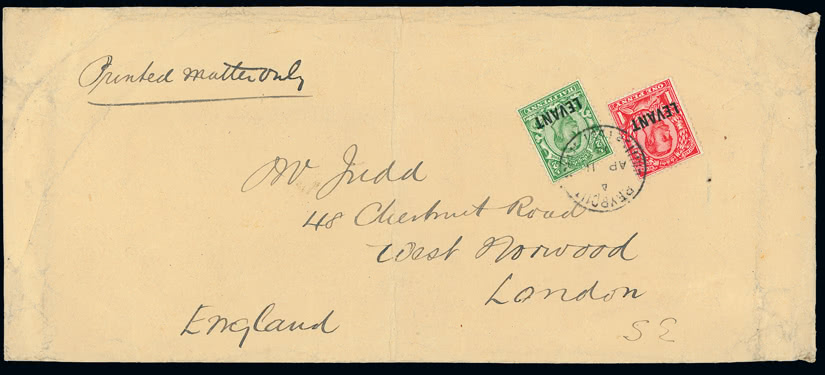 Printed matter only
HALFPENNY
LEVANT
ONE PENNY
LEVANT
BEYROUT
AP 11
Judd
48 Chestnut Road
West Norwood
London
England
S E